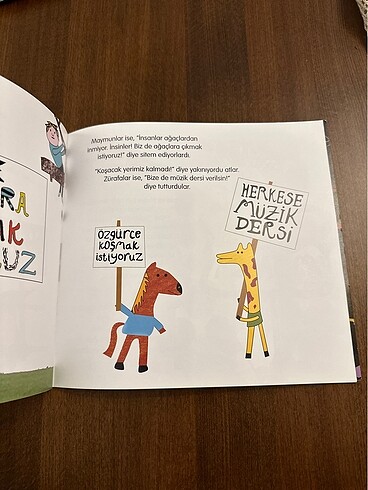 RA
K
UZ
Maymunlar ise, "İnsanlar ağaçlardan
inmiyor. İnsinler! Biz de ağaçlara çıkmak
istiyoruz!" diye sitem ediyorlardı.
"Koşacak yerimiz kalmadı!" diye yakınıyordu atlar.
Zürafalar ise, "Bize de müzik dersi verilsin!"
diye tutturdular.
HERKESE
MÜZİK
DERSİ
özgürce
koşmak
istiyoruz